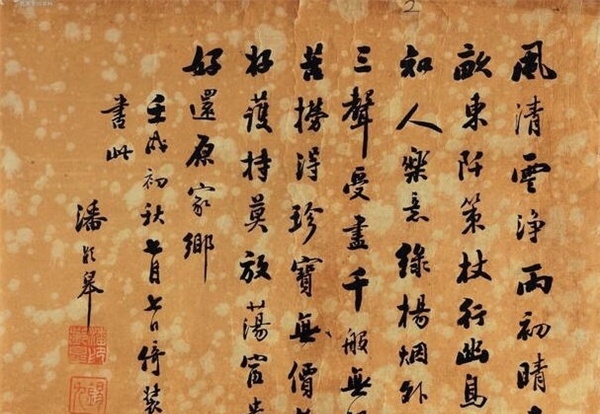 風清雲淨雨初晴
畝東阡策杖行幽鳥
知人樂意綠楊烟外
三聲受盡千般無
苦撈得珍寶無價
好護持莫放蕩富貴
好還原家鄉
壬戌初秋七月七日倚裝
書此
潘齡皋
2